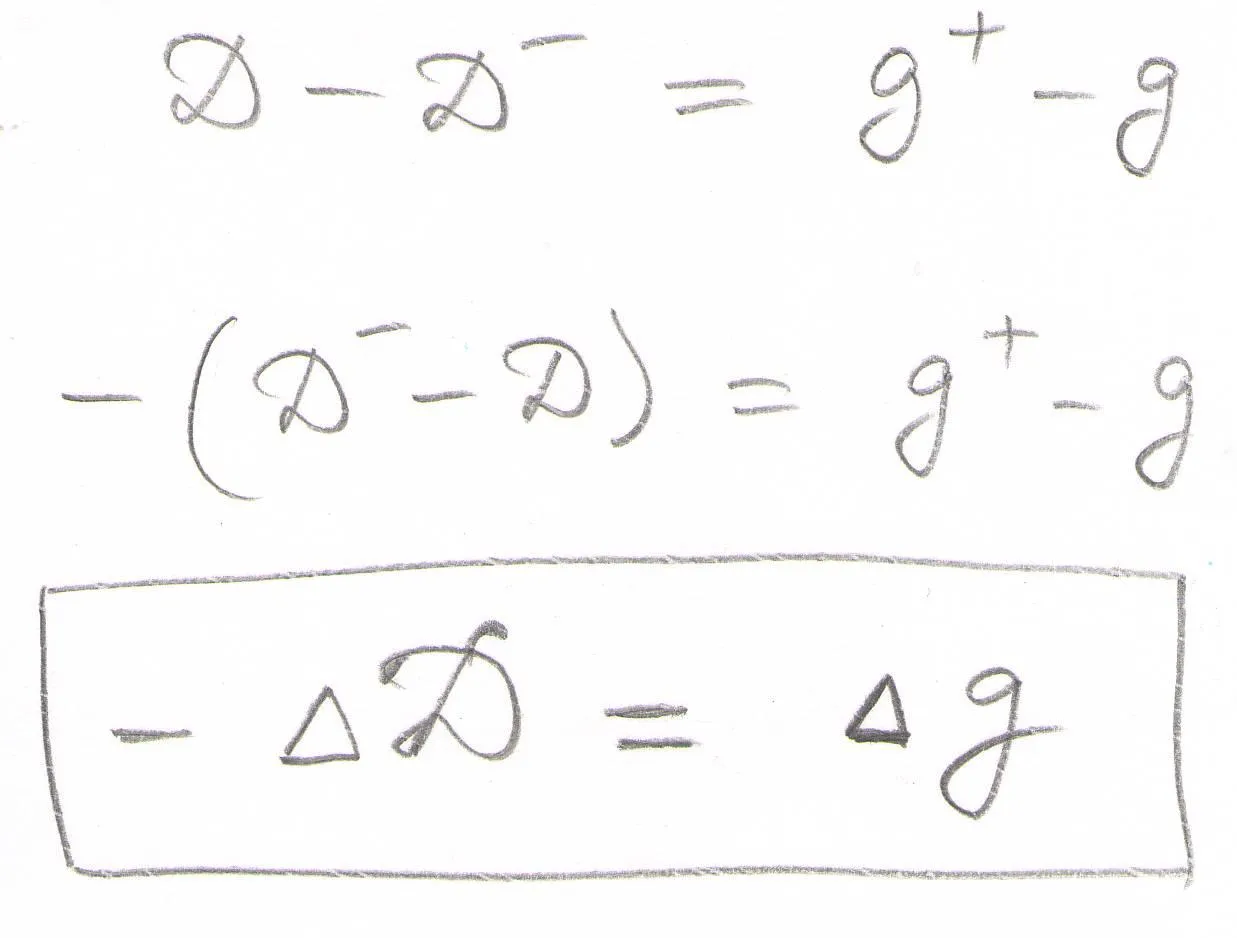 D − D⁻ = g⁺ − g
−(D⁻ − D) = g⁺ − g
− ΔD = Δg